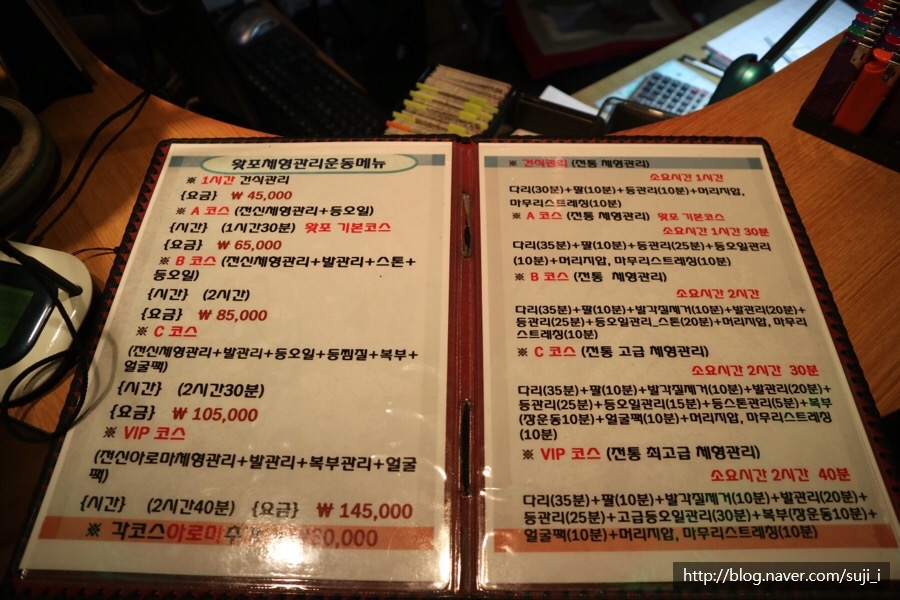 왓포체형관리운동메뉴
※ 1시간 건식관리
{요금} ₩ 45,000
※ A 코스 (전신체형관리+등오일)
{시간} (1시간30분) 왓포 기본코스
{요금} ₩ 65,000
※ B 코스 (전신체형관리+발관리+스톤+
등오일)
{시간} (2시간)
{요금} ₩ 85,000
※ C 코스
(전신체형관리+발관리+등오일+등찜질+복부+
얼굴팩)
{시간} (2시간30분)
{요금} ₩ 105,000
※ VIP 코스
(전신아로마체형관리+발관리+복부관리+얼굴
팩)
{시간} (2시간40분) {요금} ₩ 145,000
※ 각코스아로마추
※ 건식관리 (전통 체형관리)
소요시간 1시간
다리(30분)+팔(10분)+등관리(10분)+머리지압,
마무리스트레칭(10분)
※ A 코스 (전통 체형관리) 왓포 기본코스
소요시간 1시간 30분
다리(35분)+팔(10분)+등관리(25분)+등오일관리
(10분)+머리지압, 마무리스트레칭(10분)
※ B 코스 (전통 체형관리)
소요시간 2시간
다리(35분)+팔(10분)+발각질제거(10분)+발관리(20분)+
등관리(25분)+등오일관리_스톤(20분)+머리지압, 마무리
스트레칭(10분)
※ C 코스 (전통 고급 체형관리)
소요시간 2시간 30분
다리(35분)+팔(10분)+발각질제거(10분)+발관리(20분)+
등관리(25분)+등오일관리(15분)+등스톤관리(5분)+복부
(장운동10분)+얼굴팩(10분)+머리지압, 마무리스트레칭
(10분)
※ VIP 코스 (전통 최고급 체형관리)
소요시간 2시간 40분
다리(35분)+팔(10분)+발각질제거(10분)+발관리(20분)+
등관리(25분)+고급등오일관리(30분)+복부(장운동10분)+
얼굴팩(10분)+머리지압, 마무리스트레칭(10분)
http://blog.naver.com/suji_i